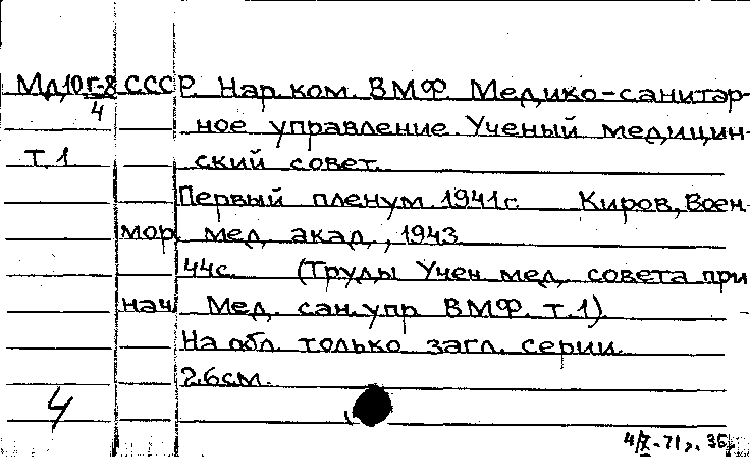 Мд10г-8 СССР. Нар. ком. ВМФ. Медико-санитар-
4
ное управление. Ученый медицин-
т. 1 ский совет.
Первый пленум. 1941г. Киров, Воен.
мор. мед. акад., 1943.
44с. (Труды Учен. мед. совета при
нач. Мед. сан. упр. ВМФ. т. 1).
На обл. только загл. серии.
26см.
4